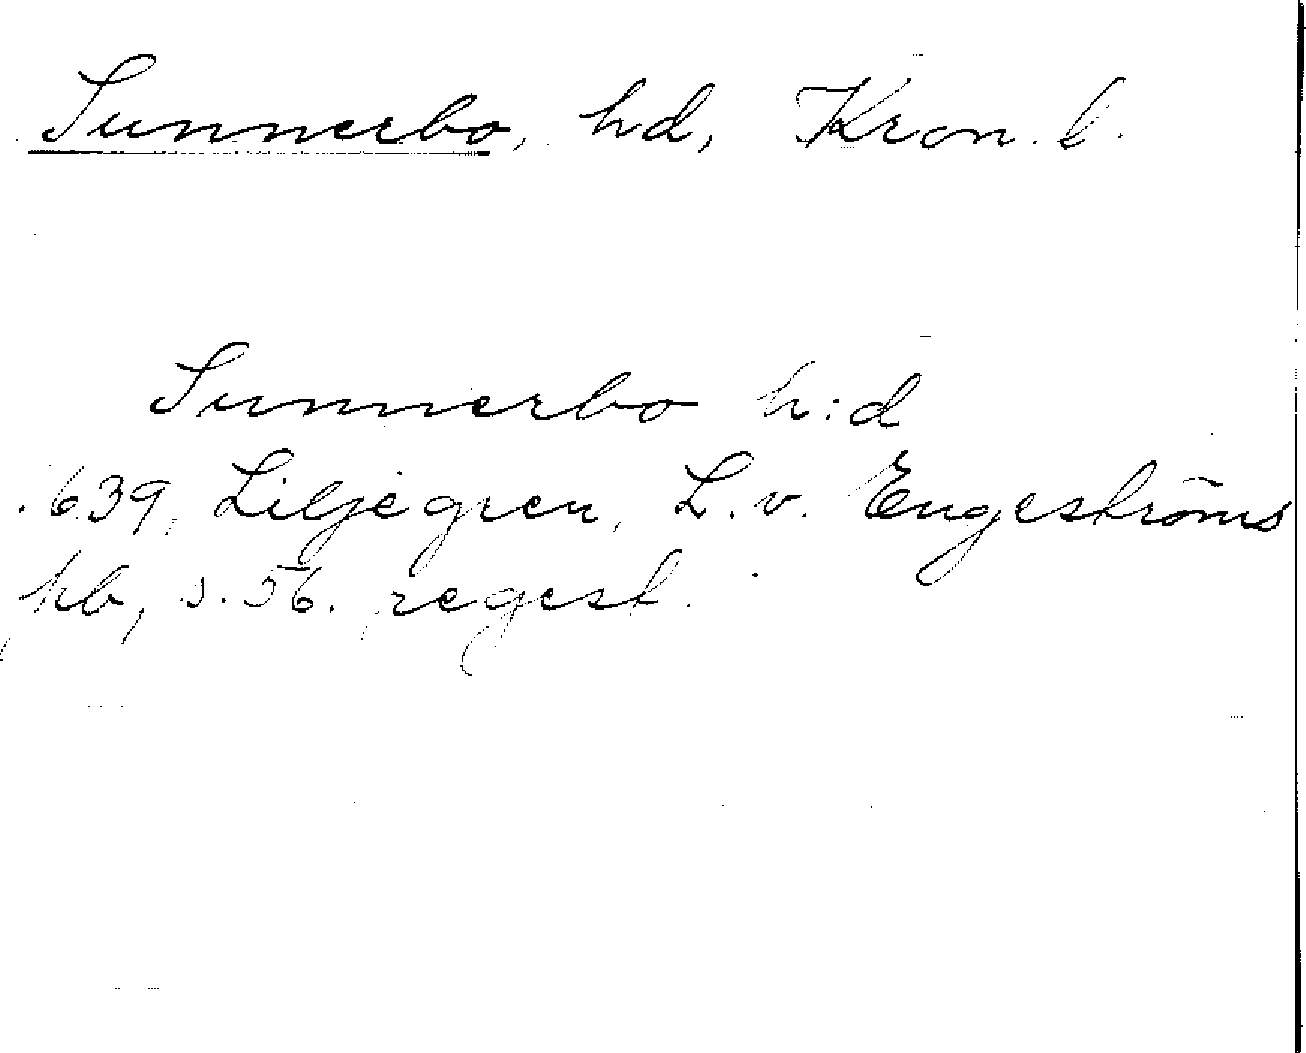 Sunnerbo, hd, Kron. l.
Sunnerbo h:d
1639, Liljegren, L. v. Engeströms
kb, s. 56. regest.